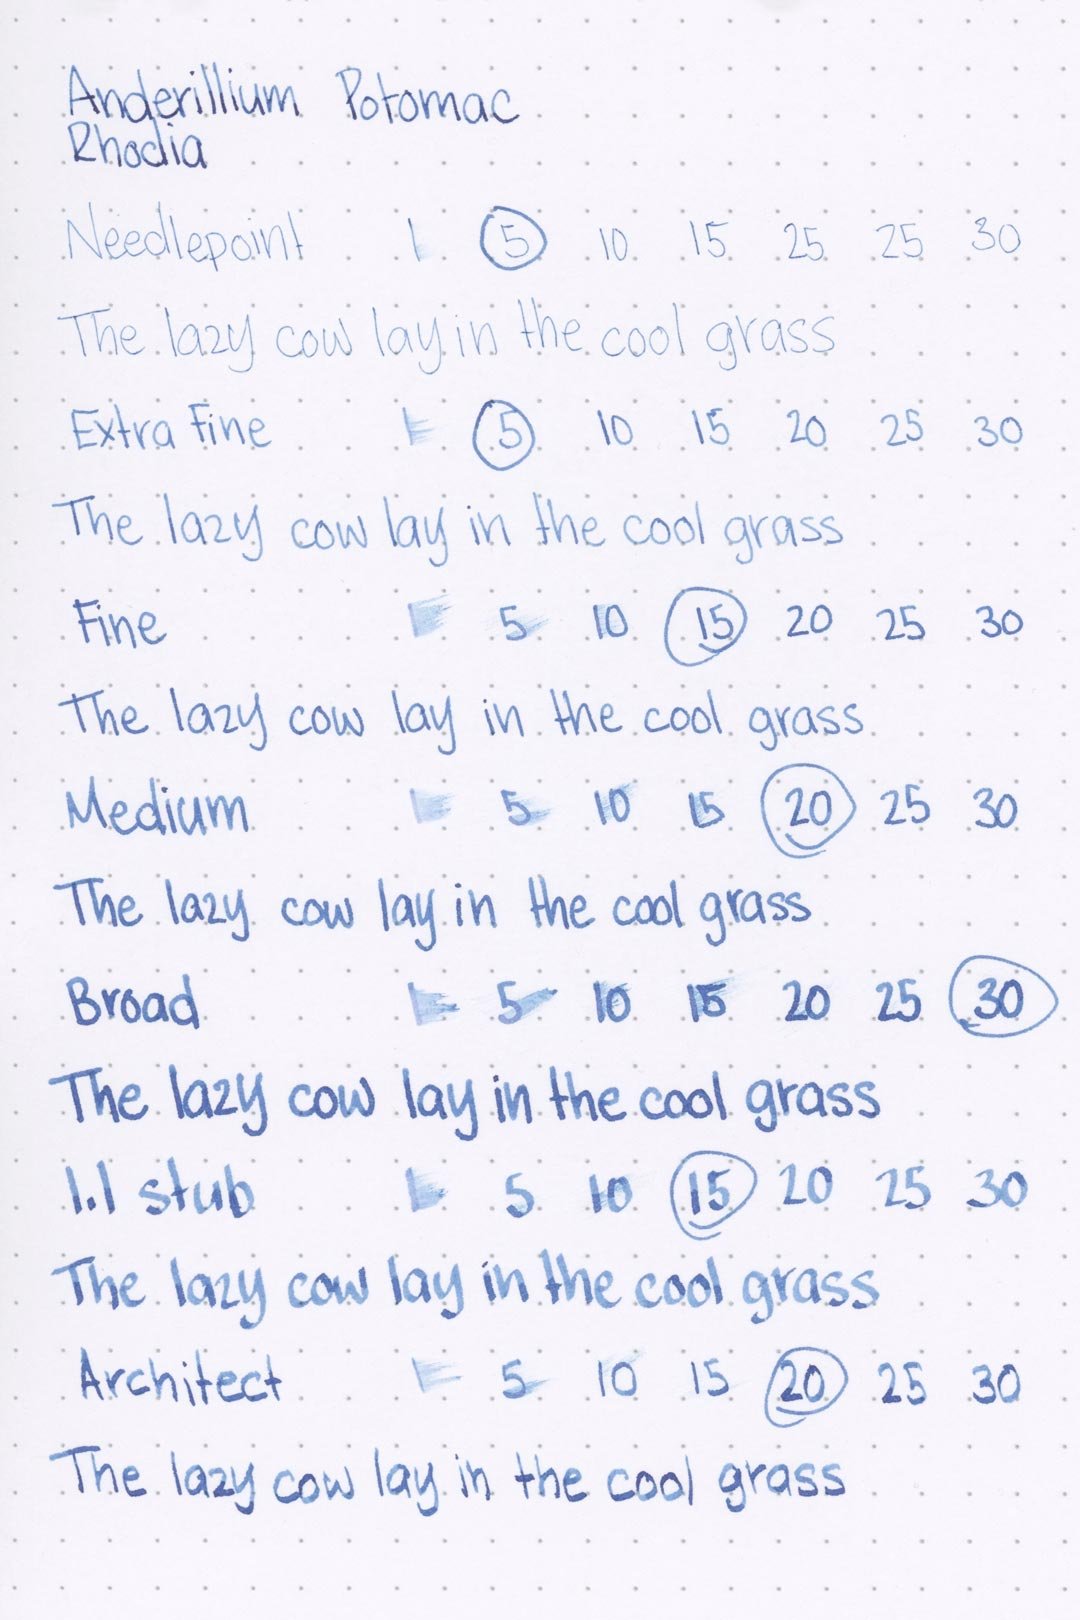 Anderillium Potomac
Rhodia
Needlepoint 1 5 10 15 25 25 30
The lazy cow lay in the cool grass
Extra Fine 1 5 10 15 20 25 30
The lazy cow lay in the cool grass
Fine 1 5 10 15 20 25 30
The lazy cow lay in the cool grass
Medium 1 5 10 15 20 25 30
The lazy cow lay in the cool grass
Broad 1 5 10 15 20 25 30
The lazy cow lay in the cool grass
1.1 stub 1 5 10 15 20 25 30
The lazy cow lay in the cool grass
Architect 1 5 10 15 20 25 30
The lazy cow lay in the cool grass